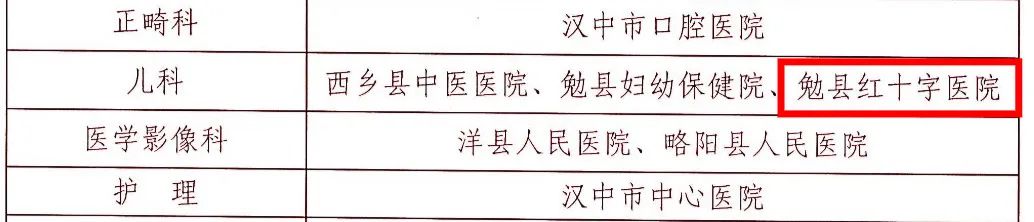 正畸科 汉中市口腔医院
儿科 西乡县中医医院、勉县妇幼保健院、勉县红十字医院
医学影像科 洋县人民医院、略阳县人民医院
护 理 汉中市中心医院